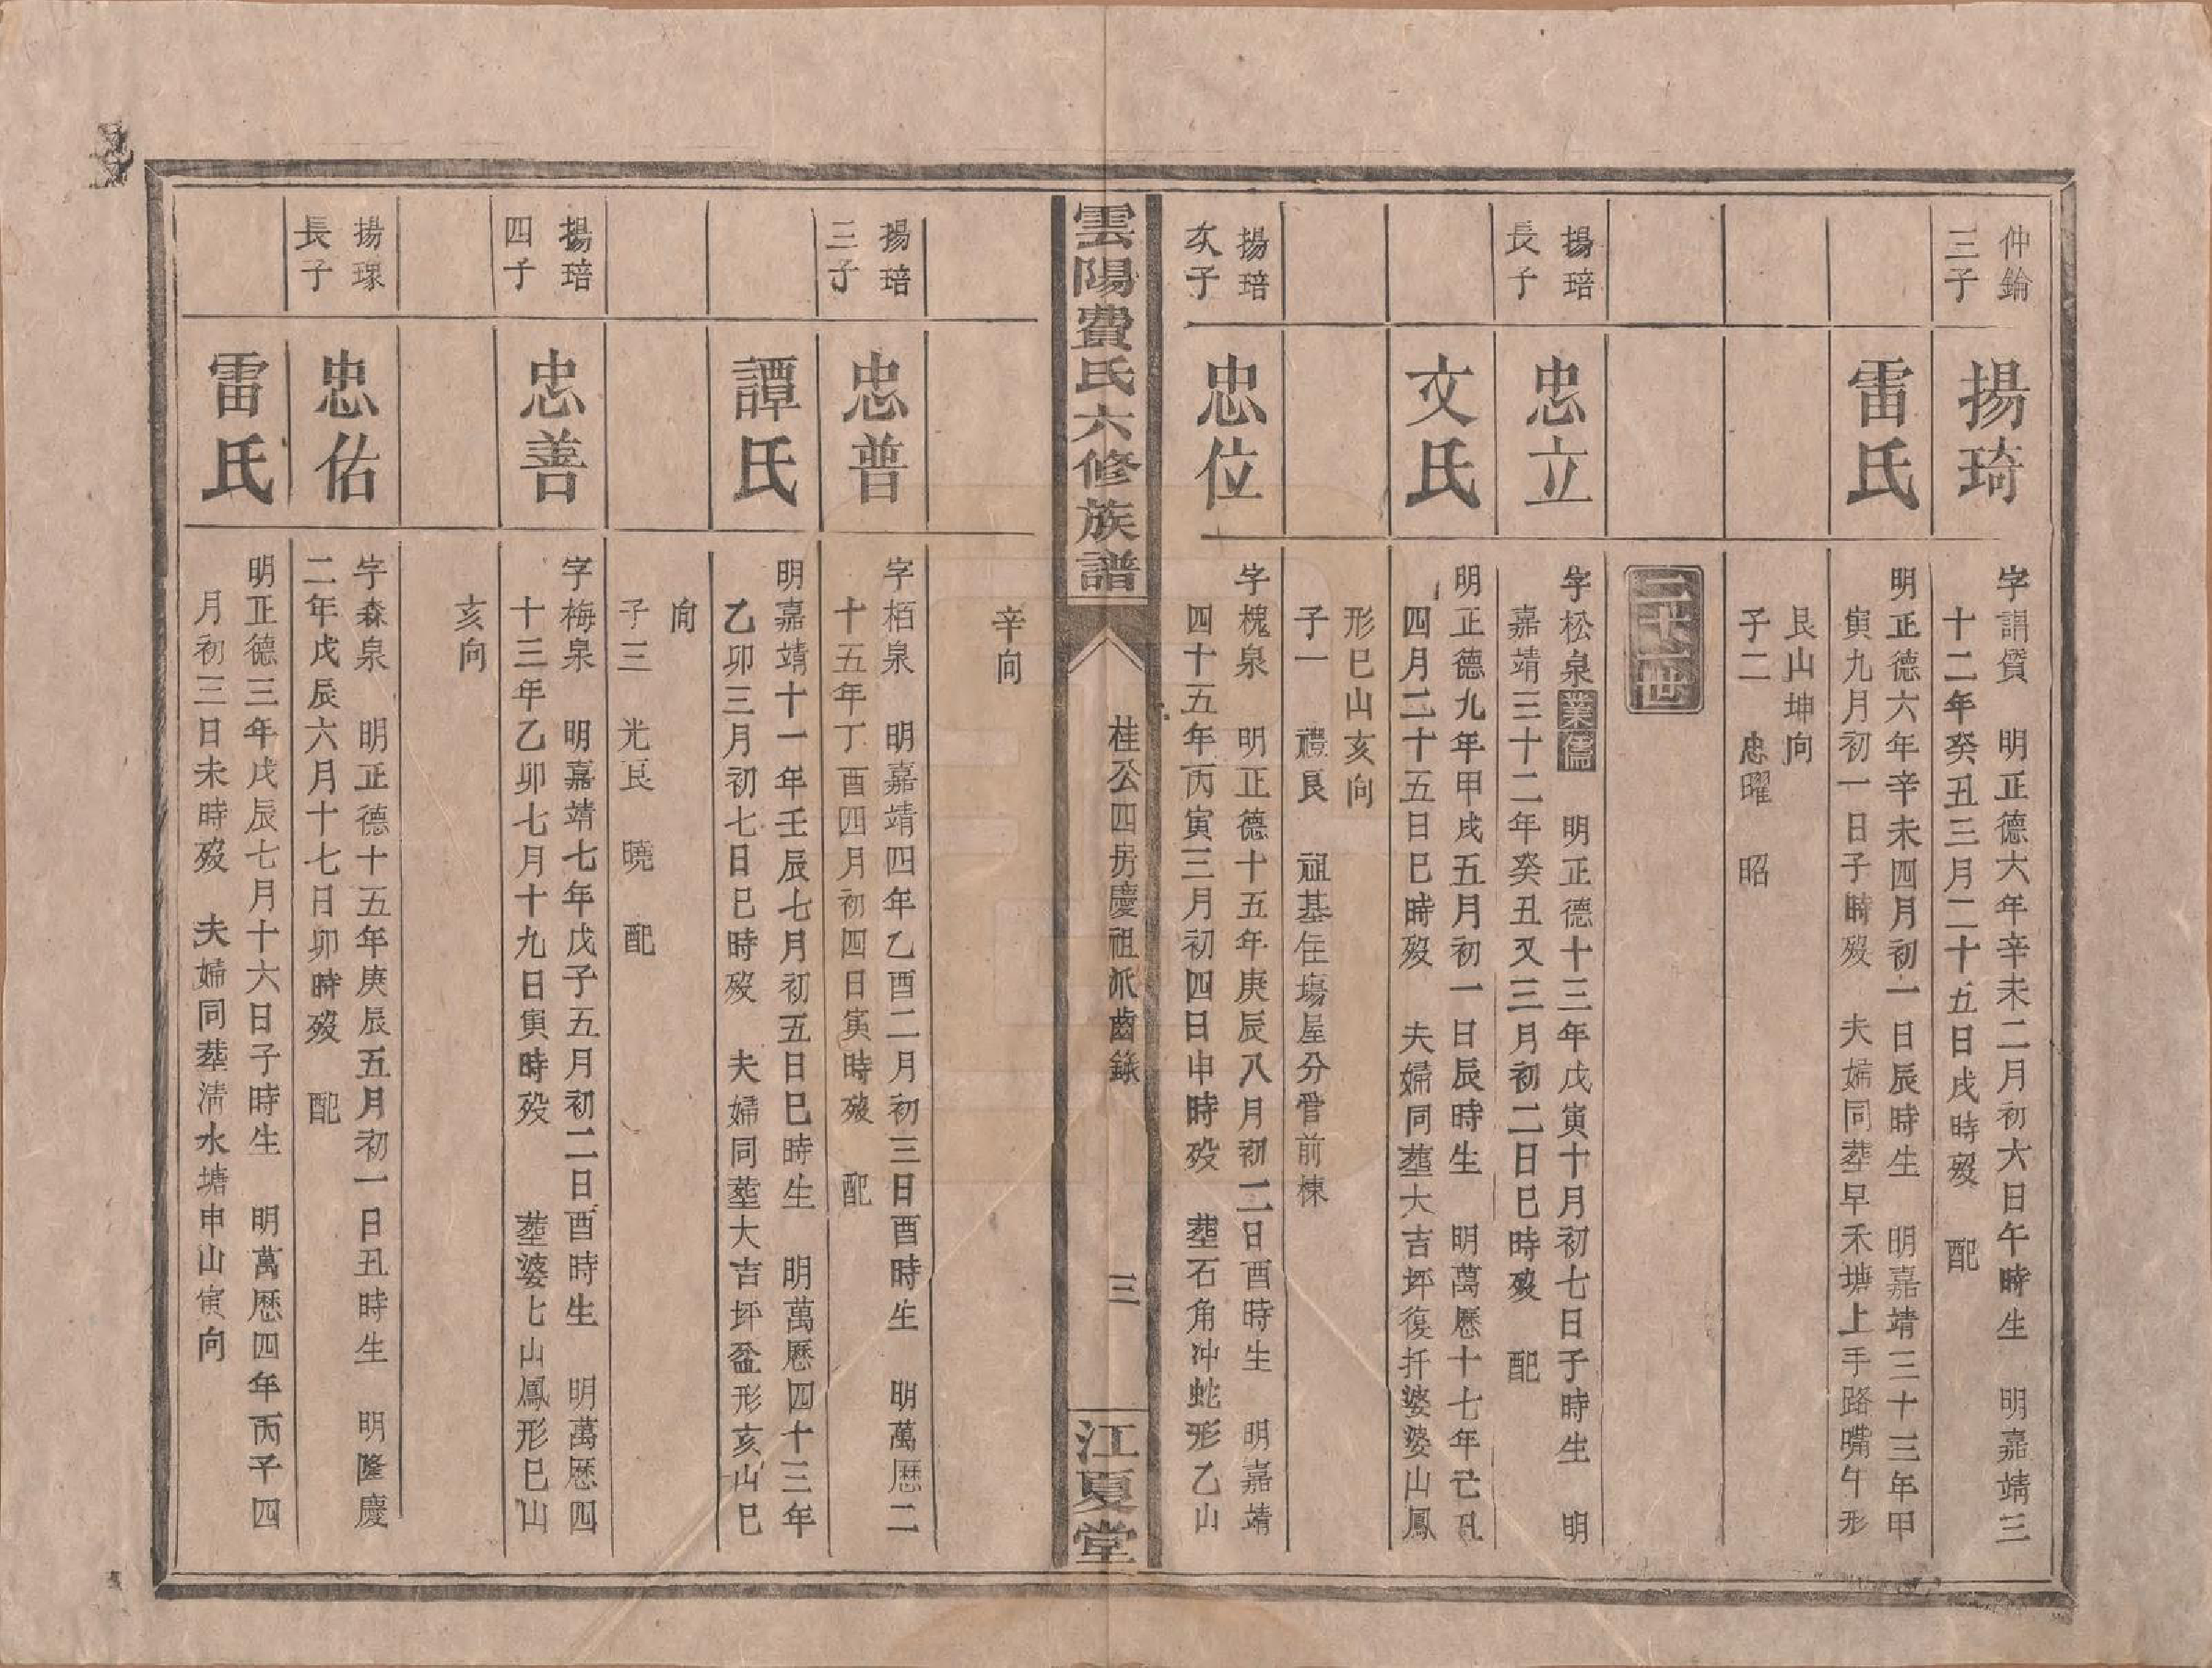 仲錀
三子
揚琦
字謂儹　明正德六年辛未二月初六日午時生　明嘉靖三
十二年癸丑三月二十五日戌時歿　配
雷氏
明正德六年辛未四月初一日辰時生　明嘉靖三十三年甲
寅九月初一日子時歿　夫婦同葬早禾塘上手路嘴牛形
艮山坤向
子二　忠曜　昭
二十一世
揚琣
長子
忠立
字松泉業儒　明正德十三年戊寅十月初七日子時生　明
嘉靖三十二年癸丑又三月初二日巳時歿　配
文氏
明正德九年甲戌五月初一日辰時生　明萬歷十七年己丑
四月二十五日巳時歿　夫婦同葬大吉坪復扦婆婆山鳳
形巳山亥向
子一　禮良　祖基住場屋分管前棟
揚琣
次子
忠位
字槐泉　明正德十五年庚辰八月初二日酉時生　明嘉靖
四十五年丙寅三月初四日申時歿　葬石角冲蛇形乙山
雲陽費氏六修族譜
桂公四房慶祖派齒錄
三
江夏堂
辛向
揚琣
三子
忠普
字栢泉　明嘉靖四年乙酉二月初三日酉時生　明萬歷二
十五年丁酉四月初四日寅時歿　配
譚氏
明嘉靖十一年壬辰七月初五日巳時生　明萬歷四十三年
乙卯三月初七日巳時歿　夫婦同葬大吉坪盆形亥山巳
向
子三　光良　曉　配
揚琣
四子
忠善
字梅泉　明嘉靖七年戊子五月初二日酉時生　明萬歷四
十三年乙卯七月十九日寅時歿　葬婆七山鳳形巳山
亥向
揚璟
長子
忠佑
字森泉　明正德十五年庚辰五月初一日丑時生　明隆慶
二年戊辰六月十七日卯時歿　配
雷氏
明正德三年戊辰七月十六日子時生　明萬歷四年丙子四
月初三日未時歿　夫婦同葬清水塘申山寅向